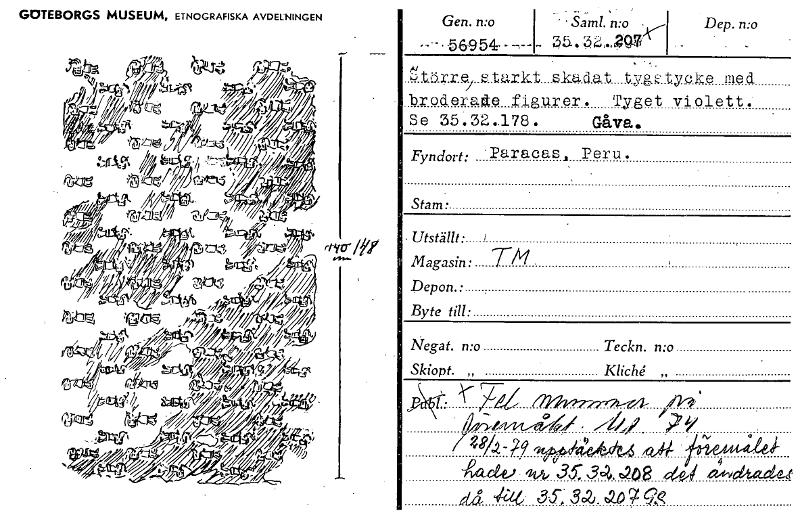 GÖTEBORGS MUSEUM, ETNOGRAFISKA AVDELNINGEN
140/148
cm
Gen. n:o Saml. n:o Dep. n:o
56954 35.32.207 x
Större, starkt skadat tygstycke med
broderade figurer. Tyget violett.
Se 35.32.178. Gåva.
Fyndort: Paracas, Peru.
Stam:
Utställt:
Magasin: TM
Depon.:
Byte till:
Negat. n:o Teckn. n:o
Skiopt. „ Kliché „
Publ.: x Fel nummer på
föremålet. 74
28/2-79 upptäcktes att föremålet
hade nr 35.32.208 det ändrades
då till 35.32.207 GS